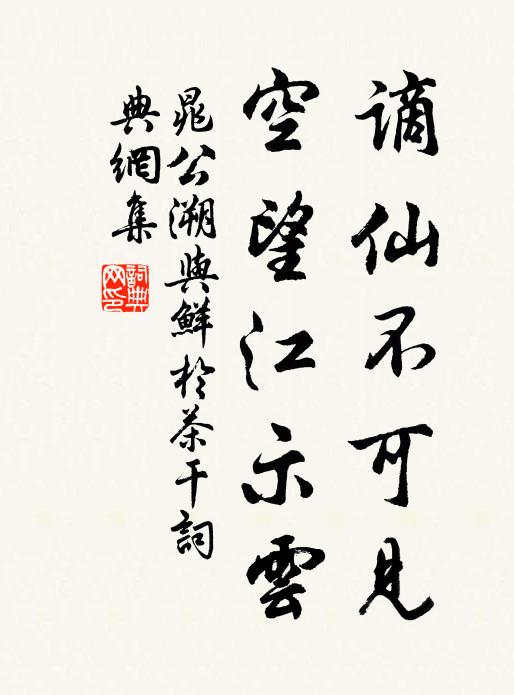 謫仙不可見
空望江示雲
晁公溯與鮮於茶干詞
典網集
詞典
网印